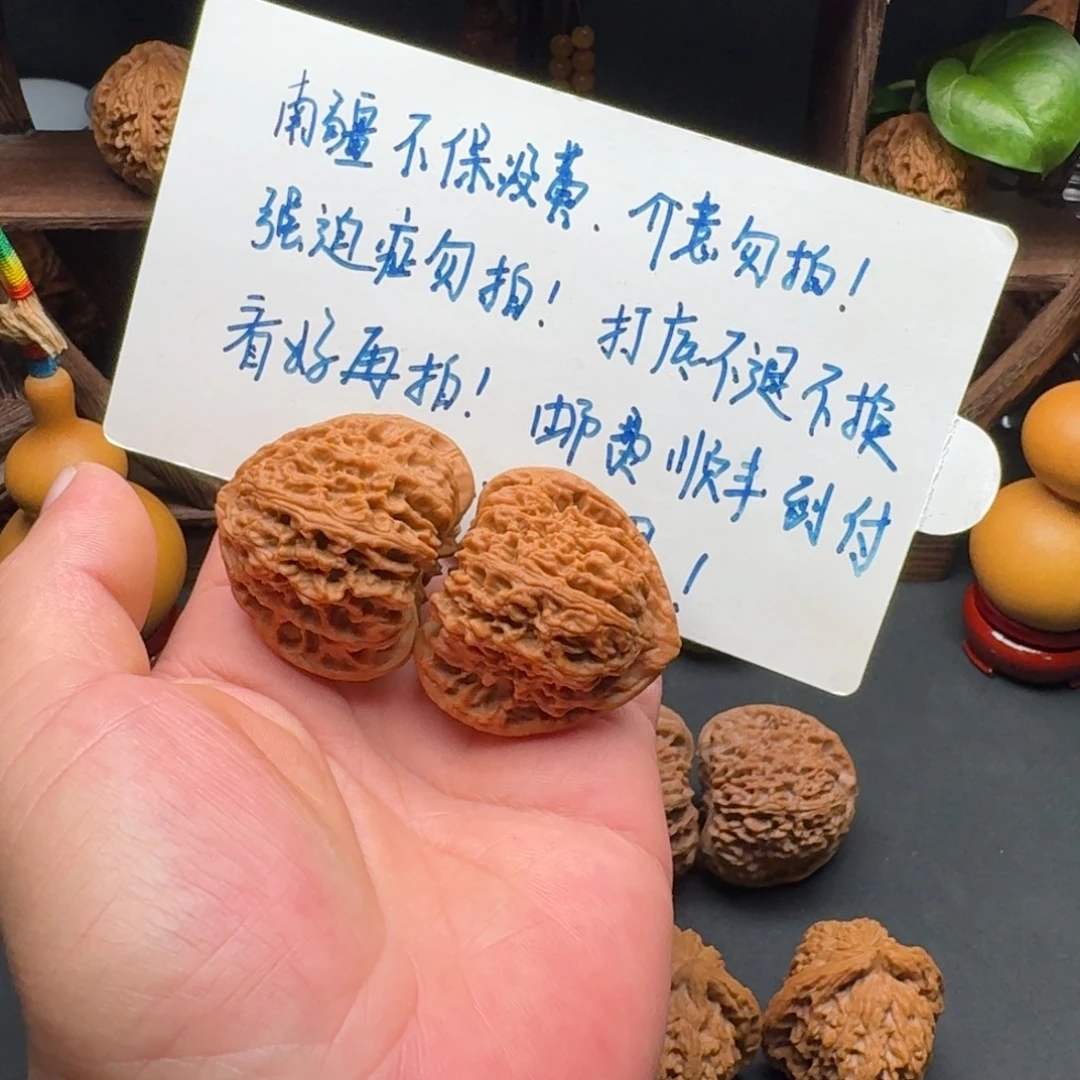 南疆不保没费.介意勿拍!
强迫症勿拍!打底不退不换
看好再拍!邮费顺丰到付
!